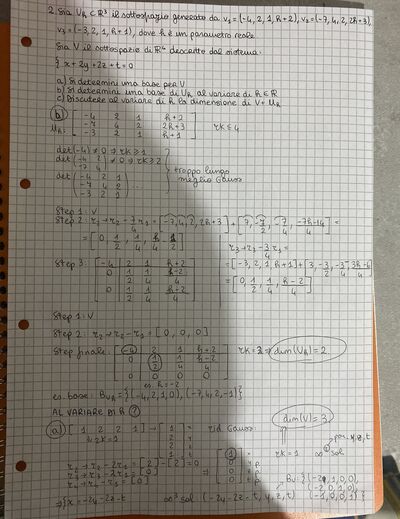 2. Sia U_h ⊂ R⁴ il sottospazio generato da v₁=(-4,2,1,h+2), v₂=(-7,4,2,2h+3),
v₃=(-3,2,1,h+1), dove h è un parametro reale.
Sia V il sottospazio di R⁴ descritto dal sistema:
{ x+2y+2z+t=0
a) Si determini una base per V
b) Si determini una base di U_h al variare di h∈R
c) Discutere al variare di h la dimensione di V+U_h
b) U_h: [ -4 2 1 h+2
-7 4 2 2h+3
-3 2 1 h+1 ] rk ≤ 4
det(-4) ≠ 0 ⇒ rk ≥ 1
det( -4 2
-7 4 ) ≠ 0 ⇒ rk ≥ 2
det( -4 2 1
-7 4 2
-3 2 1 ) ...
troppo lungo
meglio Gauss
Step 1: V
Step 2: r₂→r₂ - 7/4 r₁ = [-7, 4, 2, 2h+3] + [7, -7/2, -7/4, -7h-14/4] =
= [0, 1/2, 1/4, h-2/4]
r₃→r₃ - 3/4 r₁ =
= [-3, 2, 1, h+1] + [3, -3/2, -3/4, -3h-6/4]
= [0, 1/2, 1/4, h-2/4]
Step 3: [ -4 2 1 h+2
0 1/2 1/4 h-2/4
0 1/2 1/4 h-2/4 ]
Step 1: V
Step 2: r₂→r₂ - r₁ = [0, 0, 0]
Step finale: [ -4 2 1 h+2
0 1/2 1/4 h-2/4
0 0 0 0 ] rk=2 ⇒ dim(U_h)=2
es. h=-2
es. base: B_Uh = {(-4,2,1,0), (-7,4,2,-1)}
AL VARIARE DI h ?
dim(V)=3
a) [1 2 2 1] → [ 1
2
2
1 ] = rid Gauss:
rk=1 ∞³ sol
por. y, z, t
r₂→r₂ - 2r₁ = [2] - [2] = 0
r₃→r₃ - 2r₁ = [0]
r₄→r₄ - r₁ = [0]
⇒ {x = -2y-2z-t
∞³ sol (-2y-2z-t, y, z, t)
B_V: {(-2,1,0,0),
(-2,0,1,0)
(-1,0,0,1)}